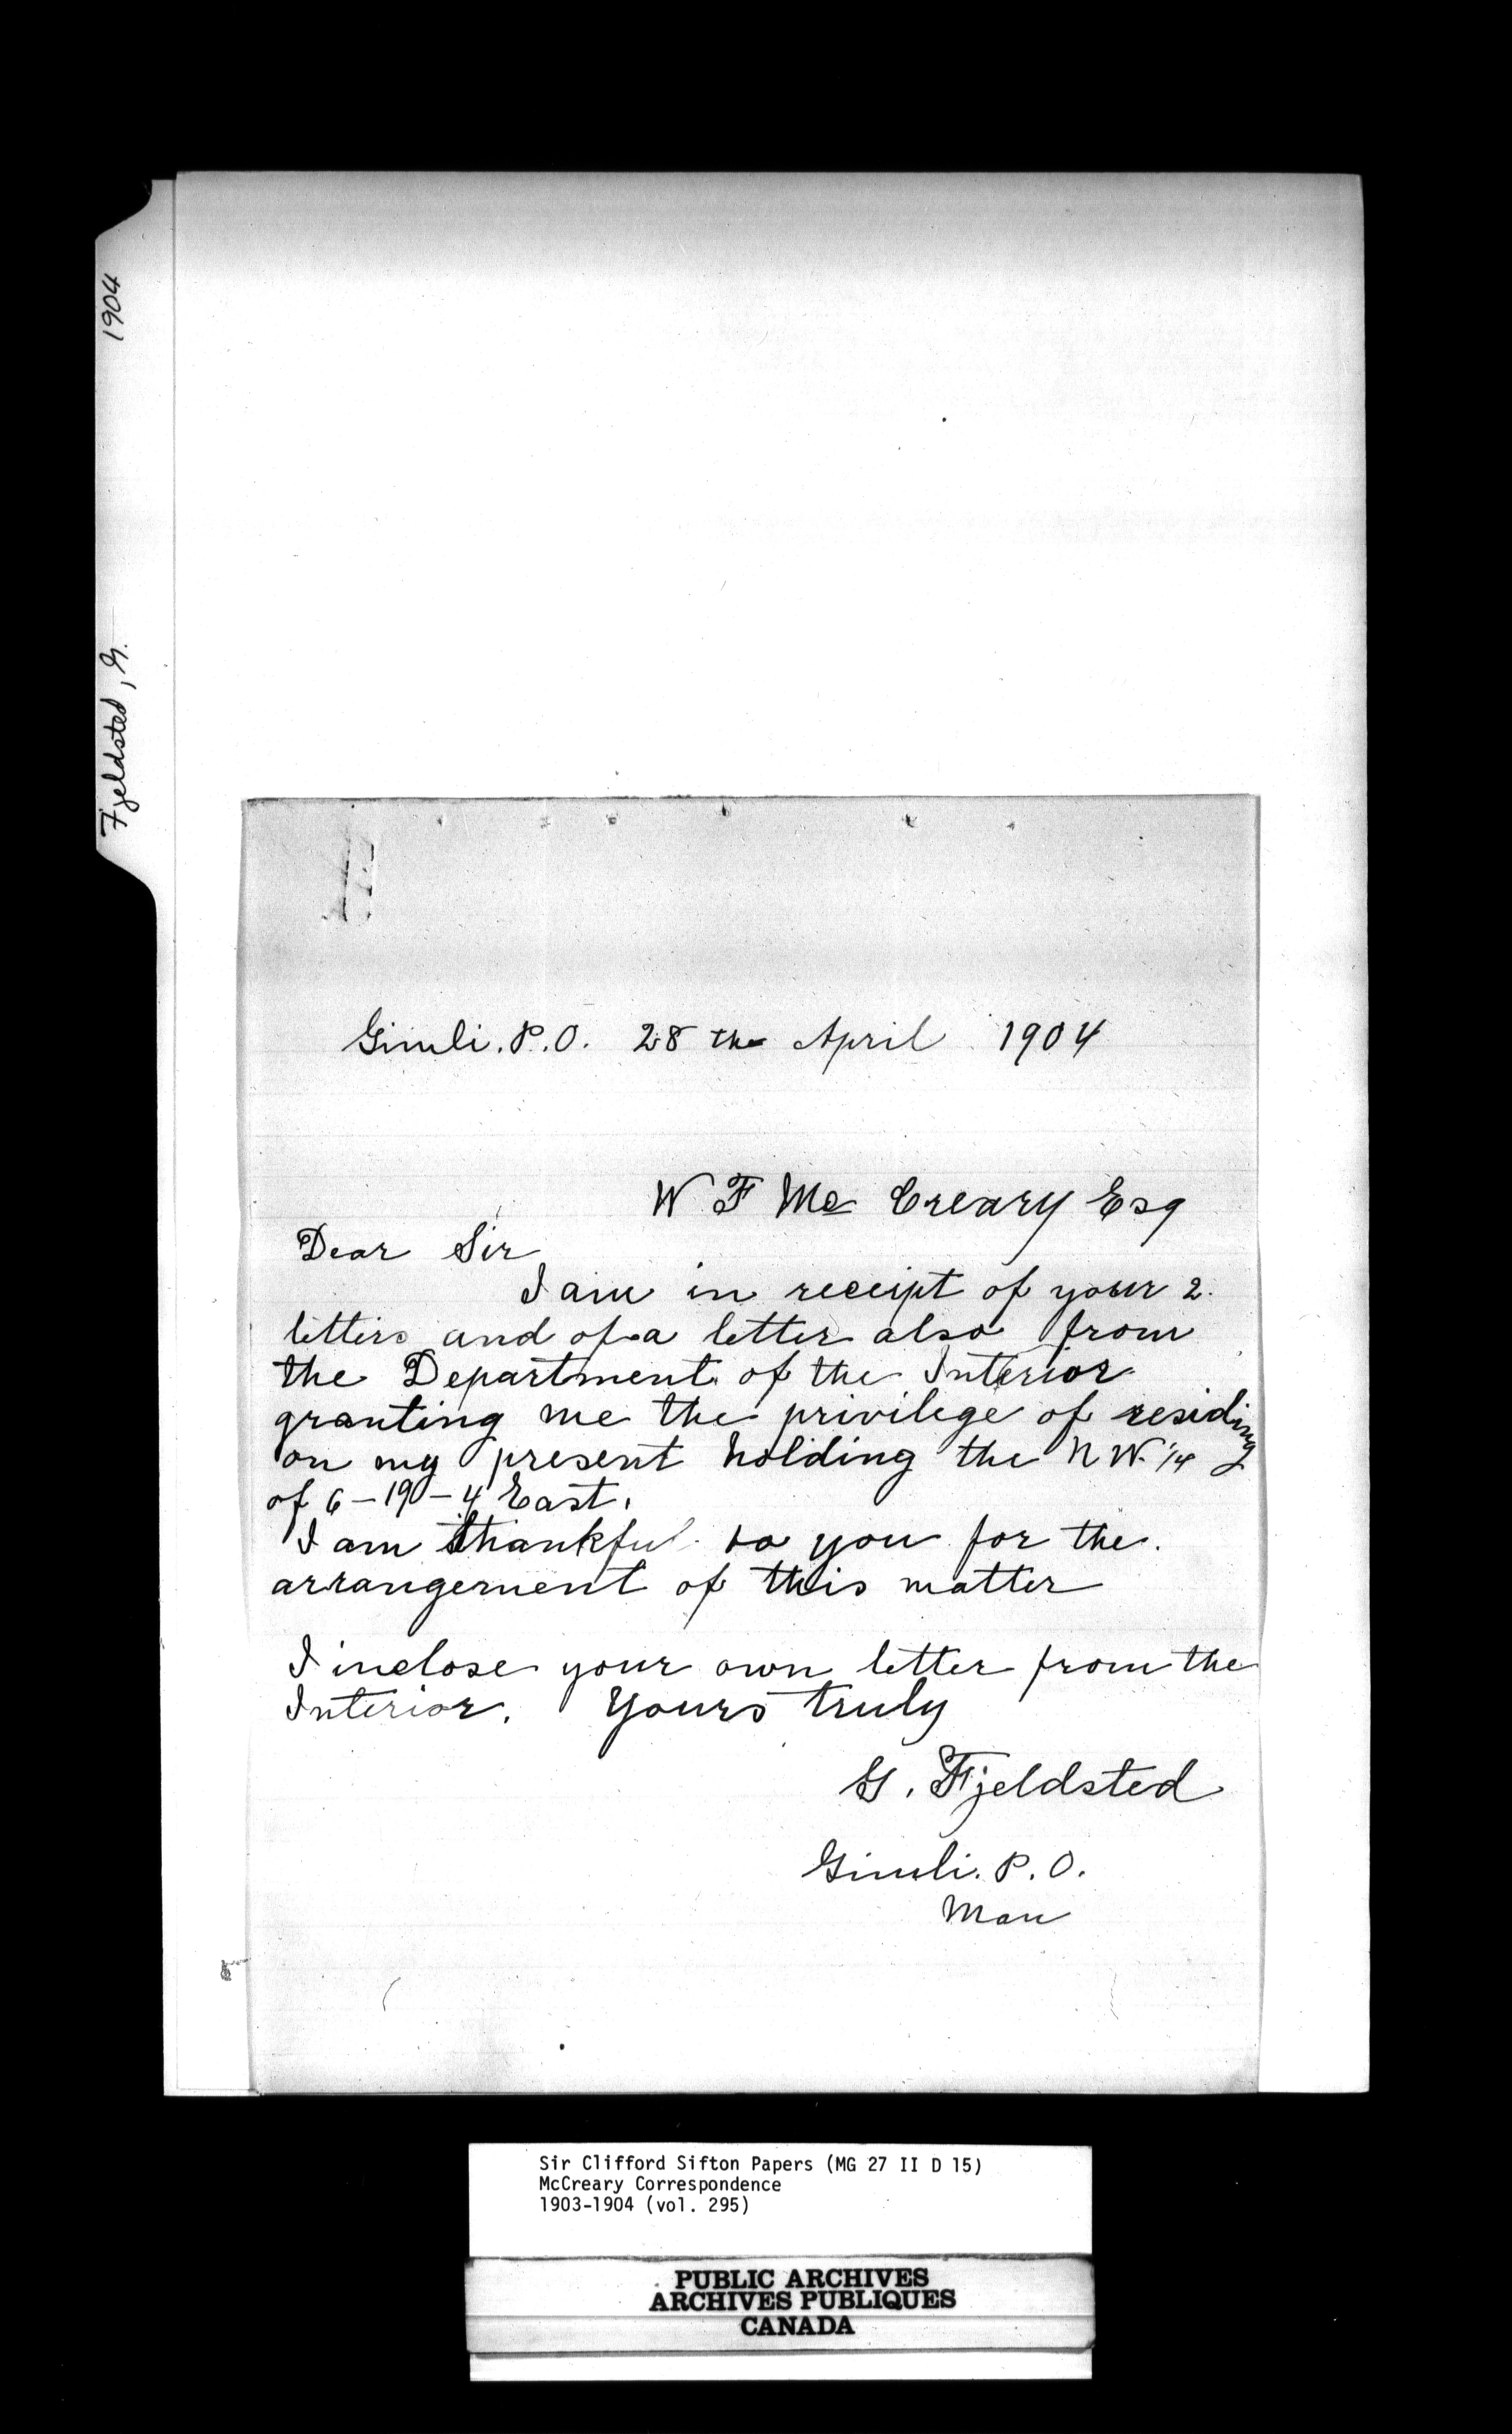 1904
Fjeldsted, G.
Gimli. P.O. 28 the April 1904
W F Mc Creary Esq
Dear Sir
I am in receipt of your 2.
letters and of a letter also from
the Department of the Interior
granting me the privilege of residing
on my present holding the NW. 1/4
of 6-19-4 East.
I am thankful to you for the.
arrangement of this matter
I inclose your own letter from the
Interior. Yours truly
G. Fjeldsted
Gimli. P.O.
Man
Sir Clifford Sifton Papers (MG 27 II D 15)
McCreary Correspondence
1903-1904 (vol. 295)
PUBLIC ARCHIVES
ARCHIVES PUBLIQUES
CANADA